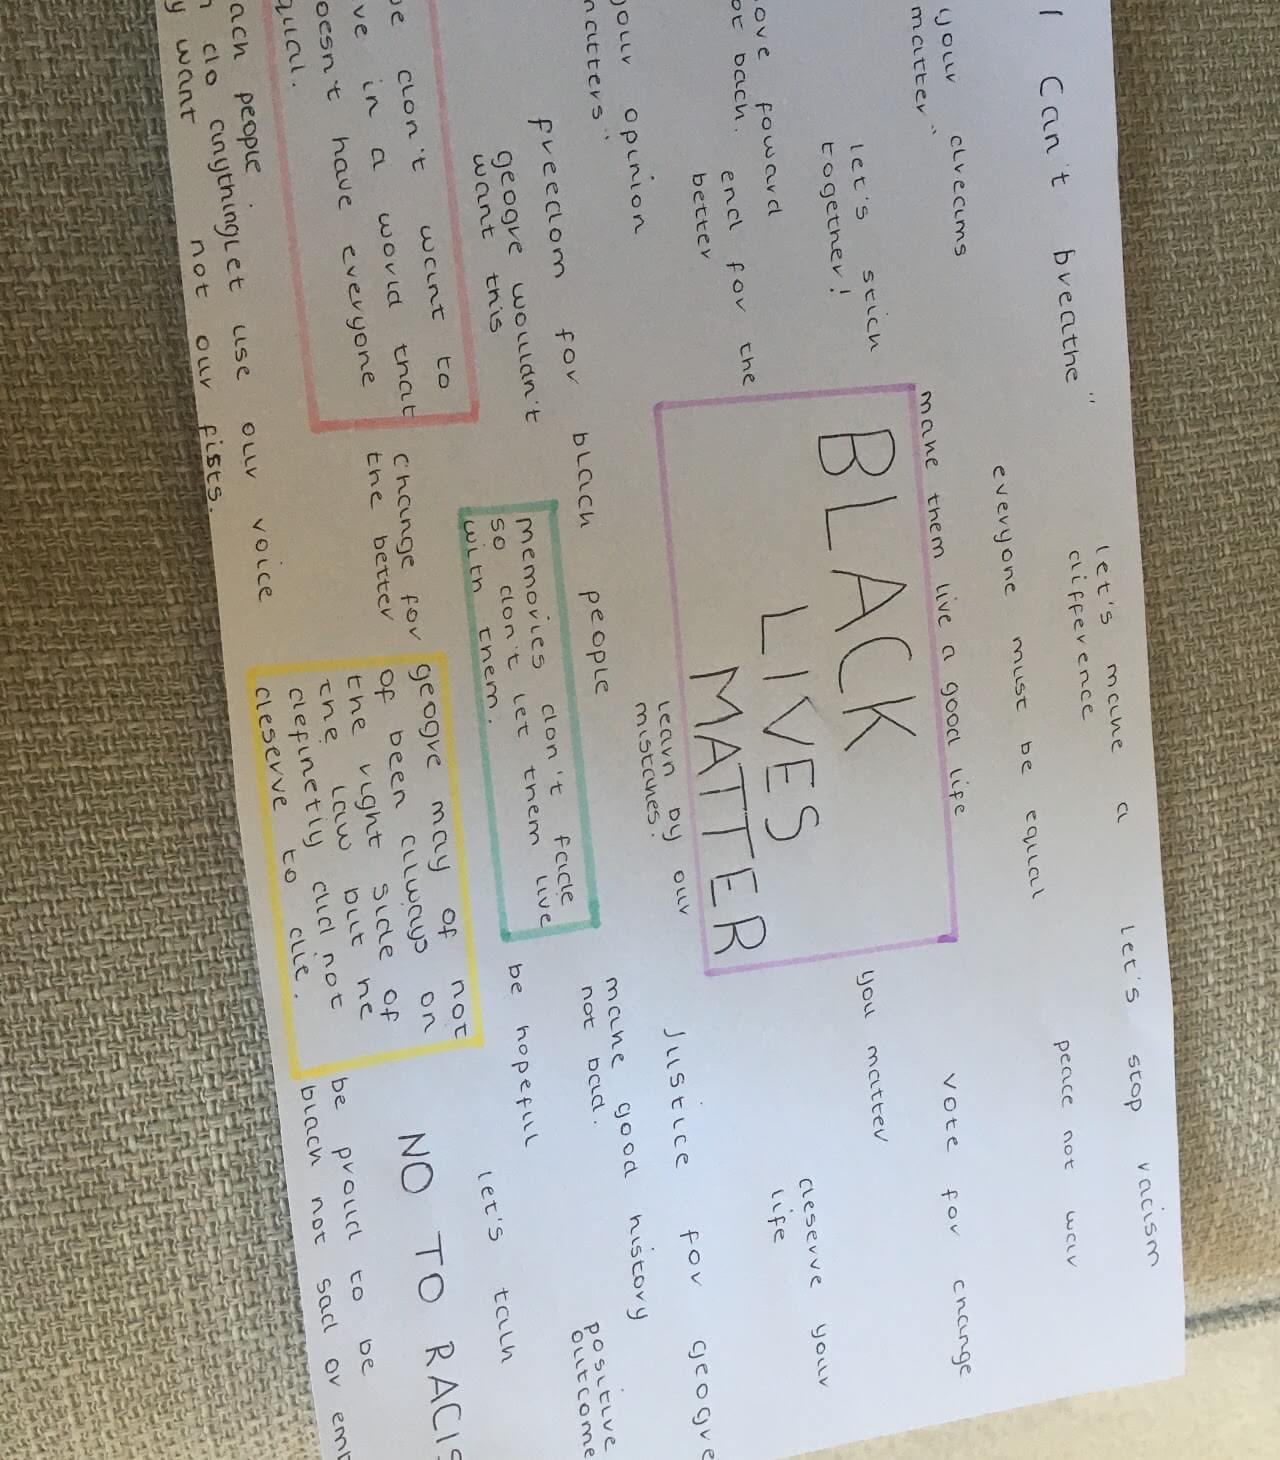 I can't breathe"
let's make a
difference
let's stop racism
your dreams
matter"
everyone must be equal
peace not war
let's stick
together!
make them live a good life
vote for change
ove foward
ot back.
end for the
better
BLACK
LIVES
MATTER
you matter
deserve your
life
your opinion
matters"
learn by our
mistakes.
Justice for geogre
freedom for black people
make good history
not bad.
positive
outcome
geogre wouldn't
want this
memories don't fade
so don't let them live
with them.
be hopeful
let's talk
e don't want to
ve in a world that
oesn't have everyone
qual.
change for
the better
geogre may of not
of been always on
the right side of
the law but he
definetly did not
deserve to die.
NO TO RACIS
be proud to be
black not sad or em
ack people
n do anything
y want
Let use our voice
not our fists.